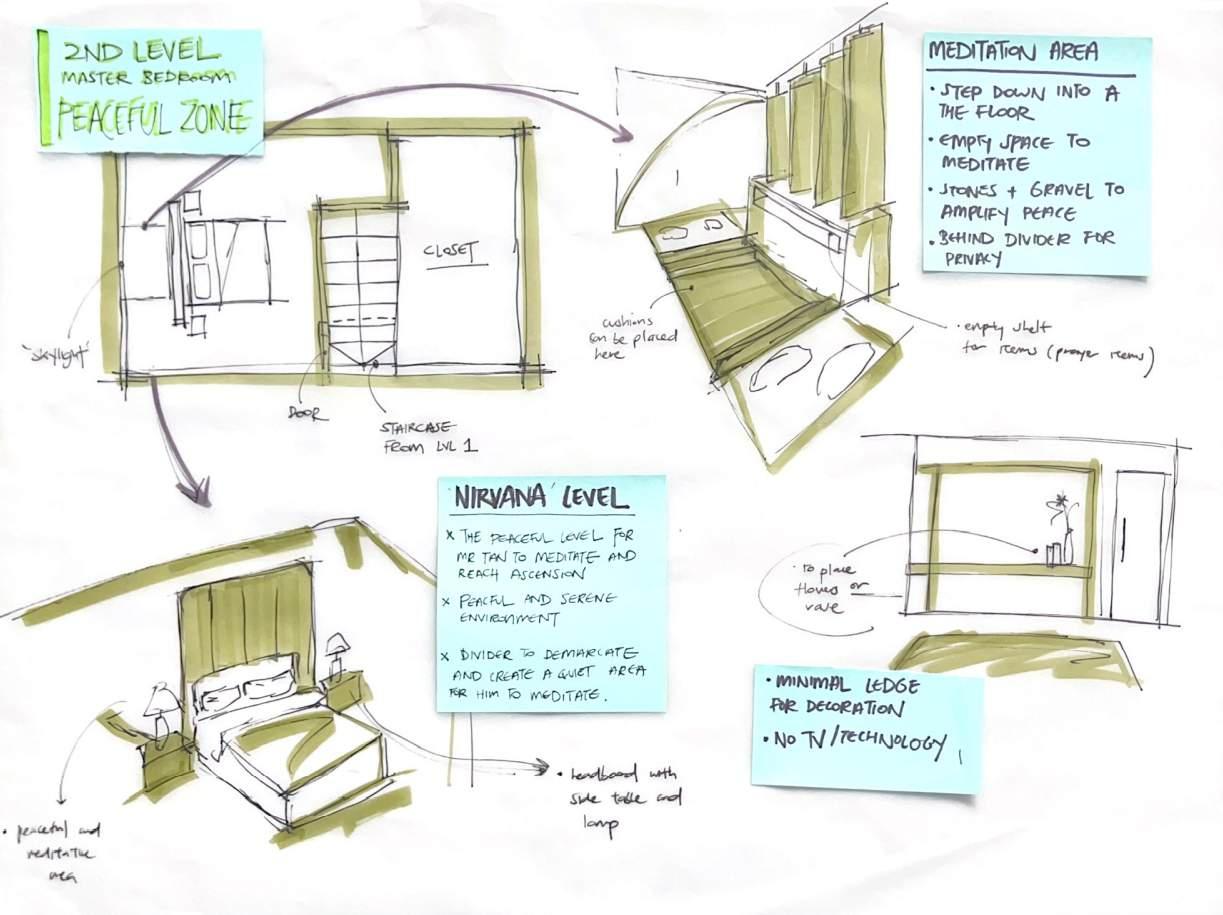 2ND LEVEL
MASTER BEDROOM
PEACEFUL ZONE
MEDITATION AREA
• STEP DOWN INTO A
THE FLOOR
• EMPTY SPACE TO
MEDITATE
• STONES + GRAVEL TO
AMPLIFY PEACE
• BEHIND DIVIDER FOR
PRIVACY
CLOSET
"skylight"
DOOR
STAIRCASE
FROM LVL 1
cushions
can be placed
here
• empty shelf
for items (prayer items)
'NIRVANA' LEVEL
x THE PEACEFUL LEVEL FOR
MR TAN TO MEDITATE AND
REACH ASCENSION
x PEACFUL AND SERENE
ENVIRONMENT
x DIVIDER TO DEMARCATE
AND CREATE A QUIET AREA
FOR HIM TO MEDITATE.
• to place
flowers or
vase
• MINIMAL LEDGE
FOR DECORATION
• NO TV/TECHNOLOGY
• headboard with
side table and
lamp
• peaceful and
meditative
area